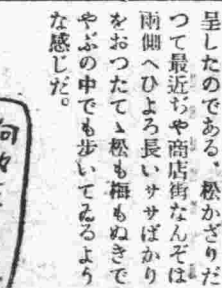 呈したのである　松かざりだ
つて最近ちや商店街なんぞは
両側へひよろ長いササばかり
をおつたてゝ松も梅もぬきで
やぶの中でも歩いてゐるよう
な感じだ。